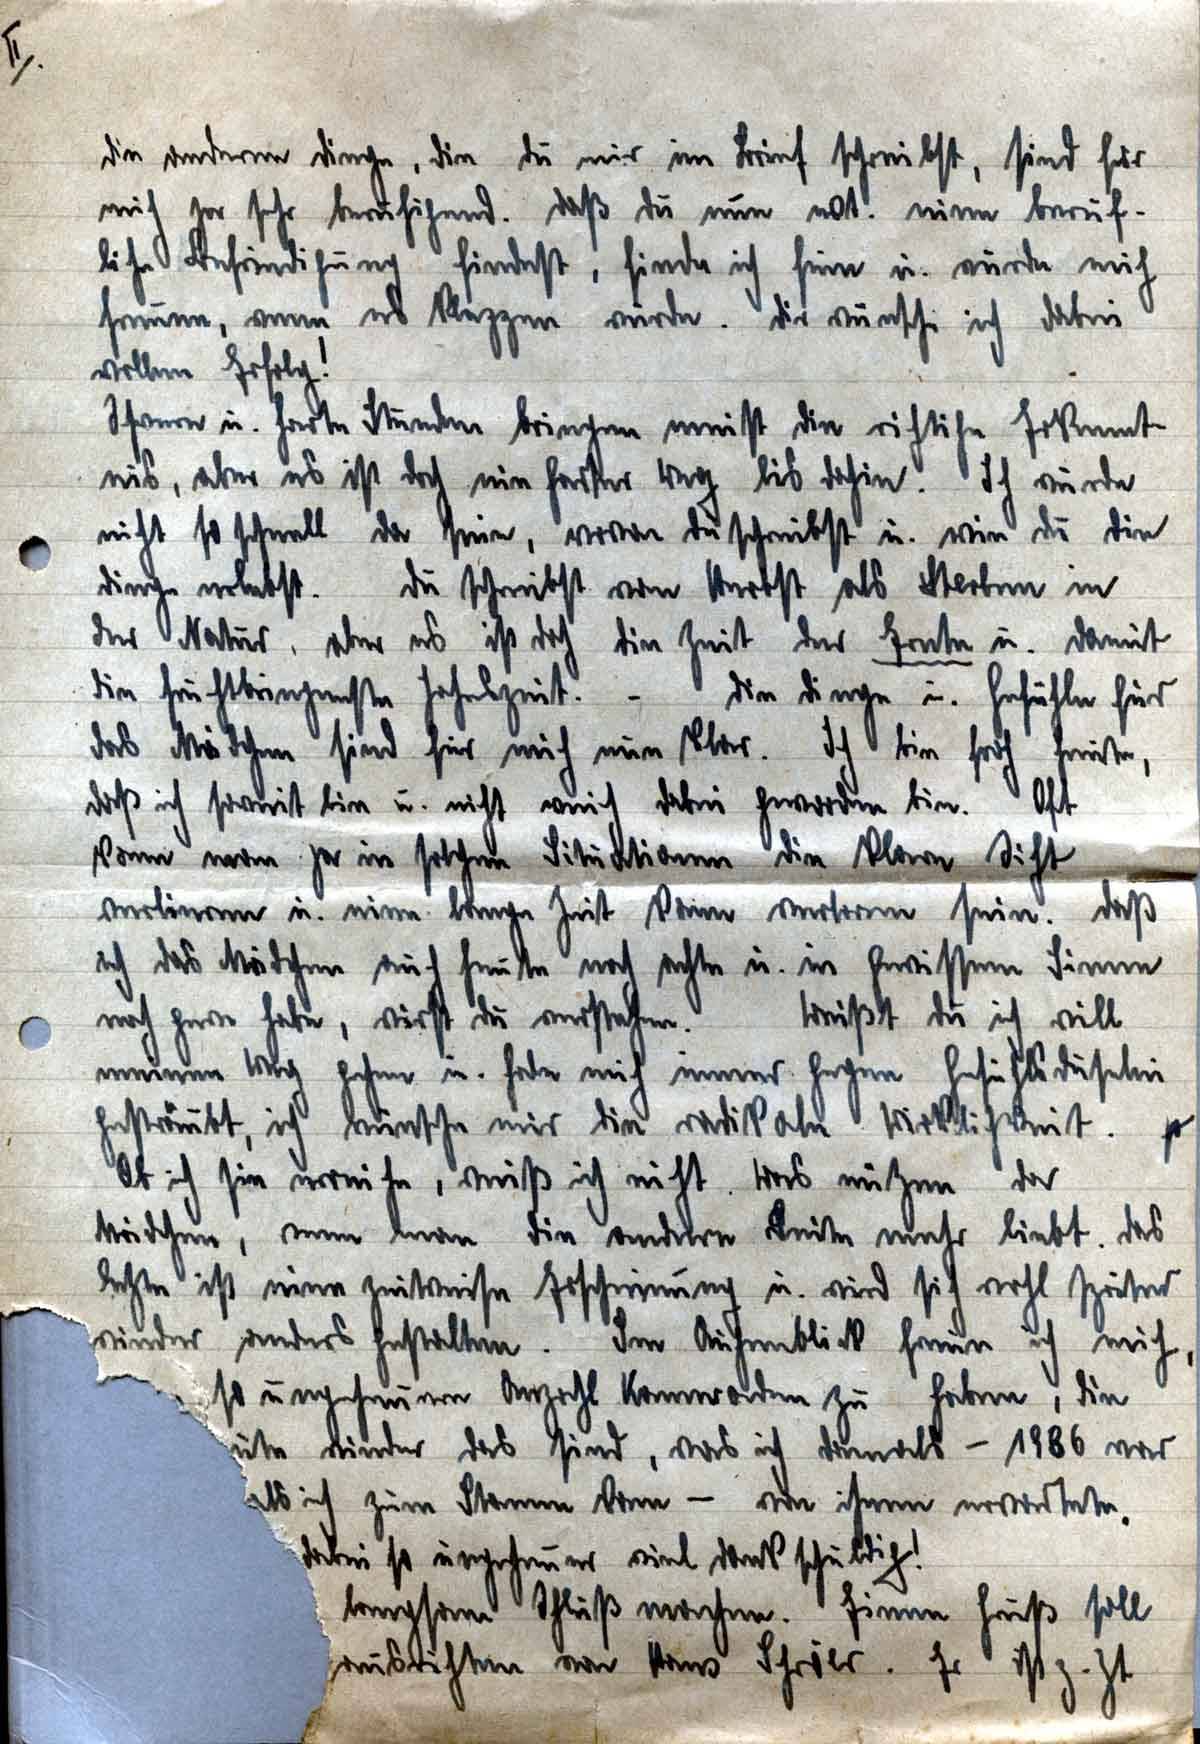 II.
die anderen Dinge, die du mir im Brief schreibst, sind für
mich ja sehr beruhigend. Daß du nun evt. eine beruf-
liche Befriedigung findest, finde ich fein u. würde mich
freuen, wenn es klappen würde. Dir wünsche ich dabei
vollen Erfolg!
Schwere u. harte Stunden bringen meist die richtige Erkennt-
nis, aber es ist doch ein harter Weg bis dahin. Ich würde
nicht so schnell da sein, wovon du schreibst u. wie du die
Dinge erlebst. Du schreibst vom Herbst als Sterben in
der Natur, aber es ist doch die Zeit der Ernte u. damit
die fruchtbringenste Jahreszeit. - Die Dinge u. Gefühle für
das Mädchen sind für mich nun klar. Ich bin froh heute,
daß ich soweit bin u. nicht weich dabei geworden bin. Oft
kann man ja in solchen Situationen die klare Sicht
verlieren u. eine lange Zeit kann verloren sein. Daß
ich das Mädchen auch heute noch achte u. in gewissem Sinne
noch gern habe, wirst du verstehen. Weißt du ich will
meinen Weg gehen u. habe mich immer gegen Gefühlsduselei
gesträubt, ich wünsche mir die radikale Wirklichkeit.
Ob ich sie erreiche, weiß ich nicht. Was nützen da
Mädchen, wenn man die andere Seite mehr liebt. Das
letzte ist eine zeitweise Erscheinung u. wird sich wohl später
wieder anders gestalten. Im Augenblick freue ich mich,
so ungeheuere Anzahl Kameraden zu haben, die
wieder das sind, was ich damals - 1936 war
als ich zum Stamm kam - von ihnen erwartete.
dabei so ungeheuer viel Dank schuldig!
langsam Schluß machen. Einen Gruß soll
ausrichten von Hans . Er ist z. Zt